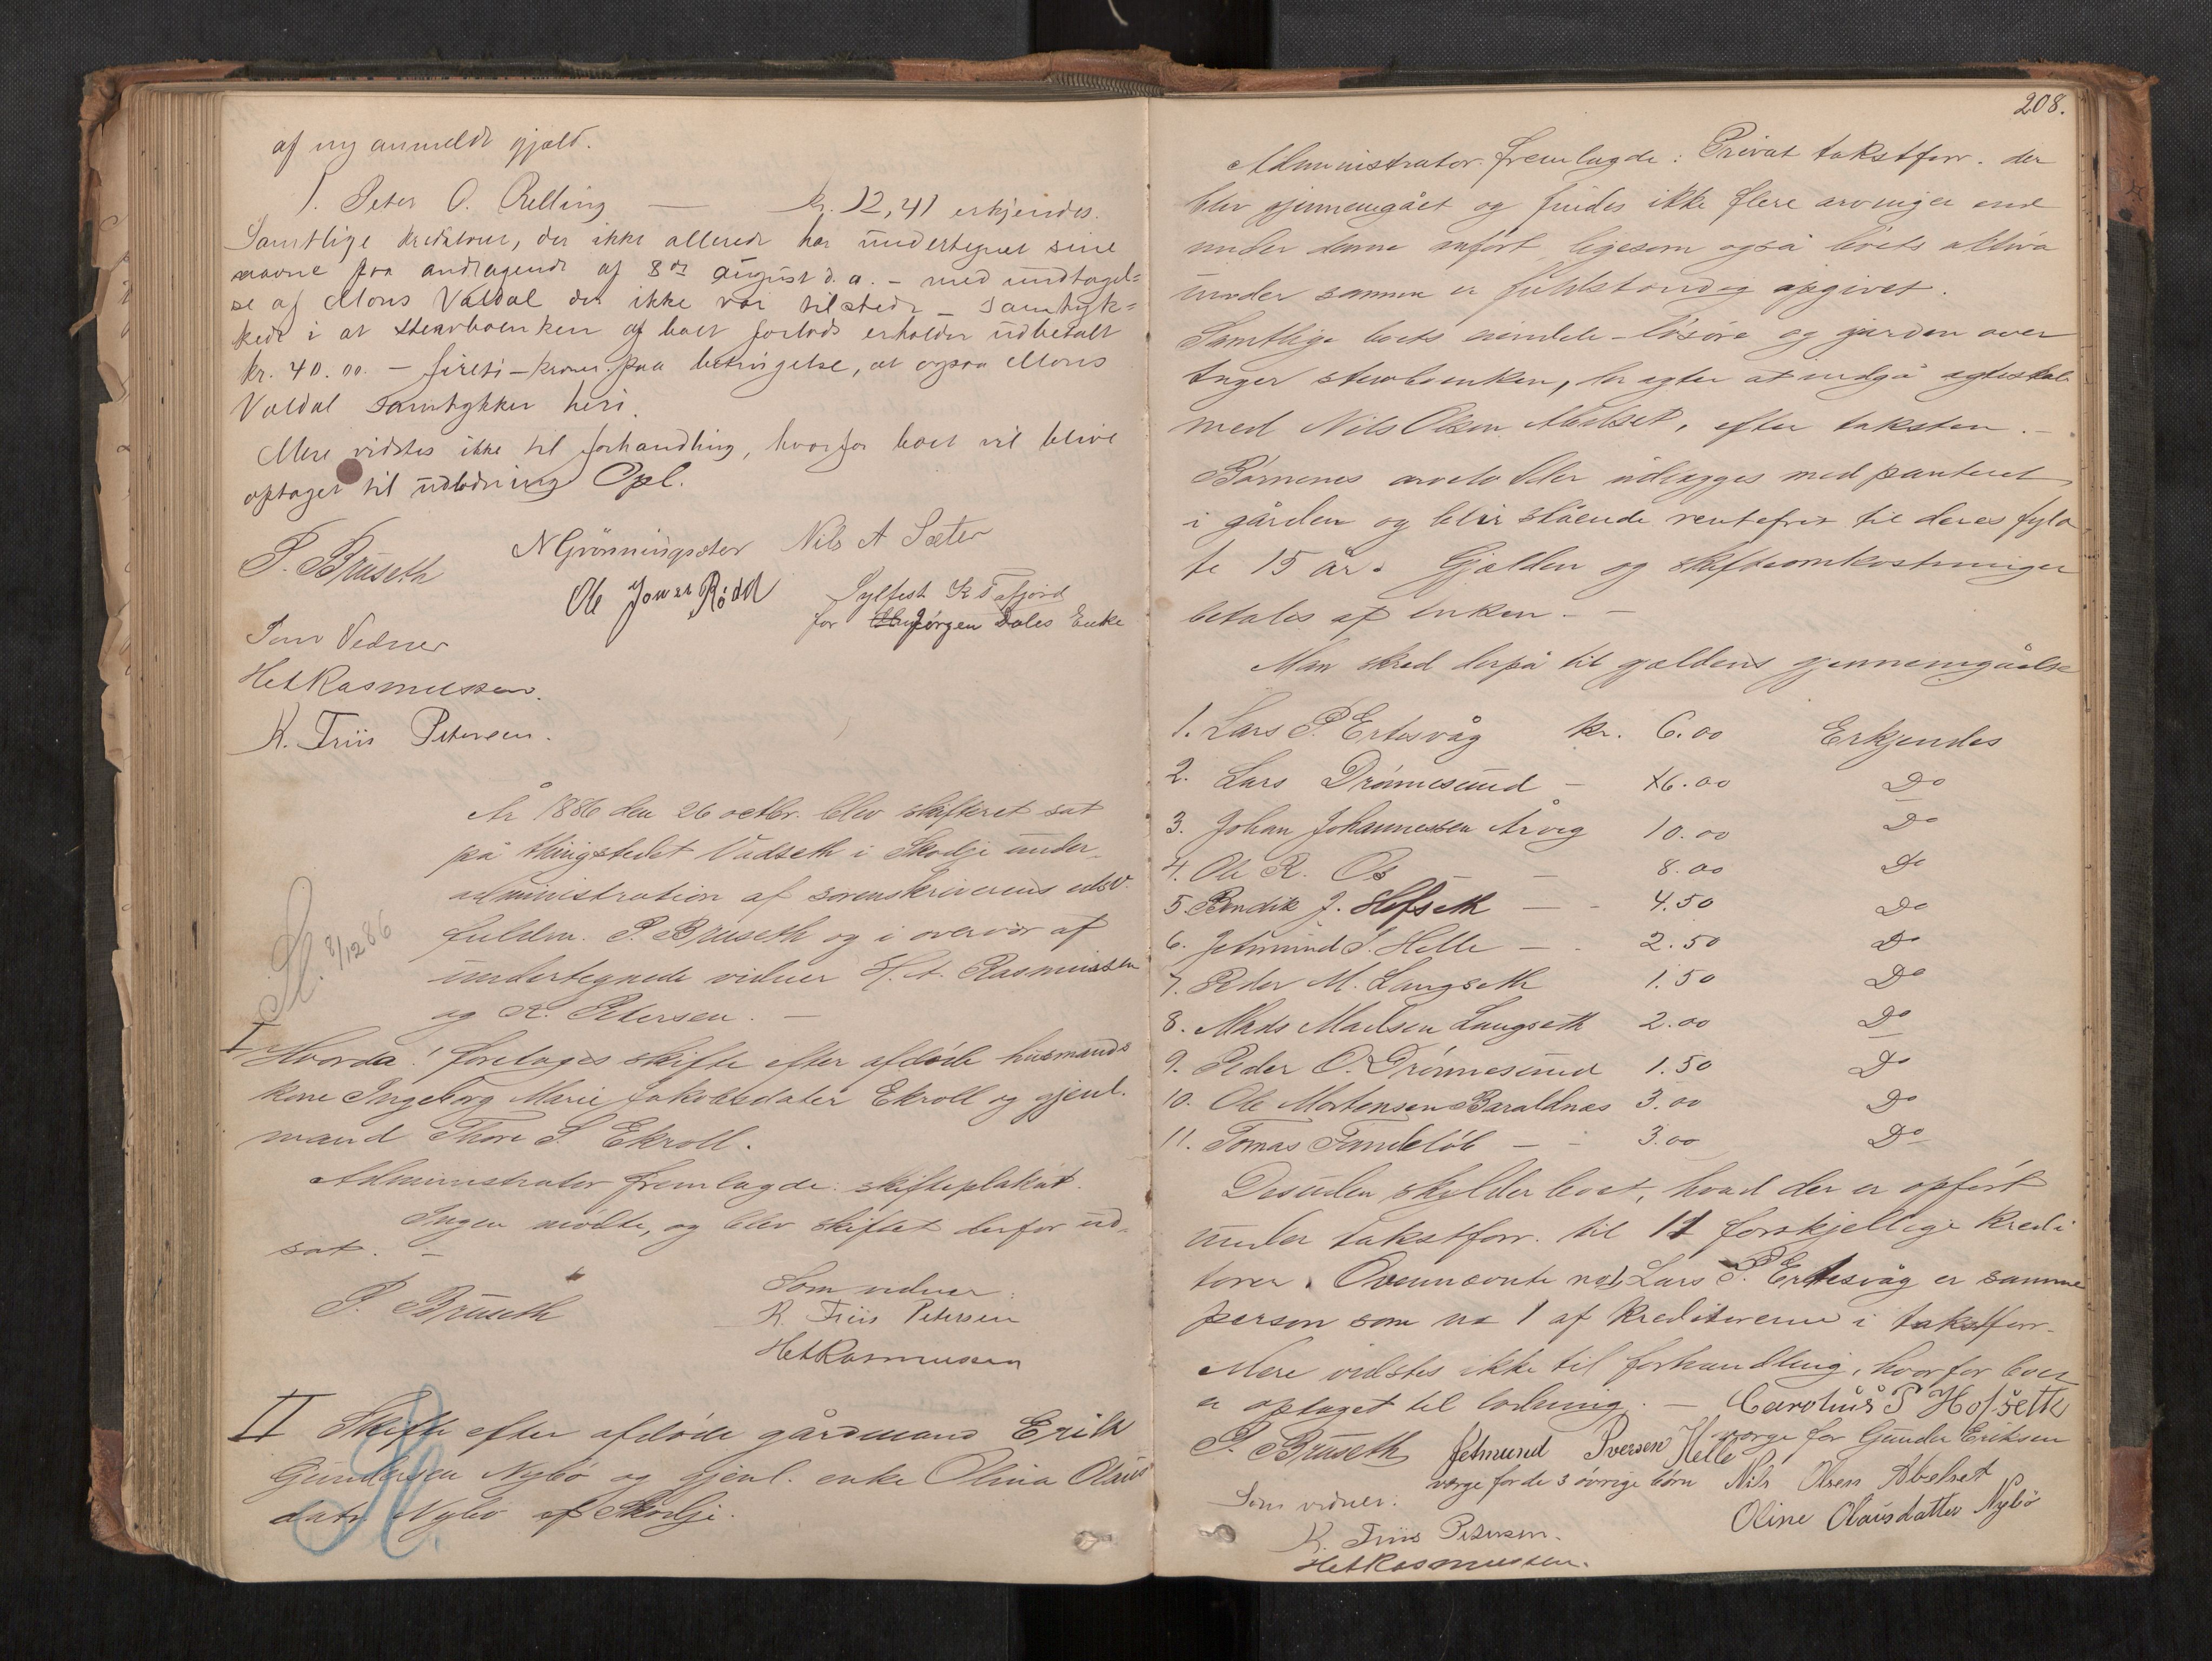 af ny anmeldt gjæld.
1. Peter O. Relling — kr. 12,41 erkjendes.
Samtlige kreditorer, der ikke allerede har undertegnet sine
navne paa andragende af 8de august d.a. - med undtagel=
se af Mons Valdal der ikke var tilstede - samtyk=
kede i at stervboenken af boet forlods erholder udbetalt
kr. 40.00. - fireti - kroner paa betingelse, at ogsaa Mons
Valdal samtykker heri.
Mere vidstes ikke til forhandling, hvorfor boet vil blive
optaget til udlodning Opl.
P. Bruseth N Grönningsæter Nils A Sæter
Ole Jonsen Rødd Sylfest K Tafjord
for Jørgen Dales Enke
Som Vidner
HetRasmussen.
K. Friis Petersen.
År 1886 den 26 octbr. blev skifteret sat
på thingstedet Vadseth i Skodje under
administration af sorenskriverens edsv.
fuldm. P. Bruseth og i overvær af
undertegnede vidner H. t. Rasmussen
og K. Petersen. —
St. 8/12 86
I Hvorda! foretages skifte efter afdöde husmands
kone Ingeborg Marie Jakobsdater Ekroll og gjenl.
mand Thore S. Ekroll.
Administrator fremlagde: skifteplakat.
Ingen mödte, og blev skiftet derfor ud-
sat. —
P. Bruseth Som vidner:
K. Friis Petersen
HetRasmussen
II Skifte efter afdöde gårdmand Erik
Gundersen Nybö og gjenl. enke Olina Olaus
datr. Nybö af Skodje.
208.
Administrator fremlagde: Privat takstforr. der
blev gjennemgået og findes ikke flere arvinger end
under denne anfört ligesom også boets aktiva
under samme er fuldstændig opgivet.
Samtlige boets eiendele - lösöre og gården over
tager stervboenken, der agter at indgå ægteskab
med Nils Olsen Abelset, efter taksten. —
Börnenes arvelodder udlægges med panteret
i gården og blir stående rentefrit til deres fyld
te 15 år. Gjælden og skifteomkostninger
betales af enken. —
Man skred derpå til gjældens gjennemgåelse
1. Lars P. Ertesvåg kr. 6.00 Erkjendes
2. Lars Drönnesund - 16.00 Do
3. Johan Johannessen Årvig 10.00 Do
4. Ole R. Os — 8.00 Do
5. Bendik J. Hofseth — - 4.50 Do
6. Jetmund S. Helle — - 2.50 Do
7. Peder M. Langseth 1.50 Do
8. Mads Madsen Langseth 2.00 Do
9. Peder O. Drönnesund 1.50 Do
10. Ole Mortensen Baraldnæs 3.00 Do
11. Tomas Tandeløb — - 3.00 Do
Desuden skylder boet, hvad der er opfört
under takstforr. til 11 forskjellige kredi
torer. Ovennævnte no 1, Lars P. Ertesvåg er samme
person som no 1 af kreditorerne i takstforr.
Mere vidstes ikke til forhandling, hvorfor boet
er optaget til lodning. — Carolus P Hofseth
P. Bruseth Jetmund Iversen Helle værge for Gunder Eriksen
værge for de 3 övrige börn Nils Olsen Abelset
Som vidner: Oline Olausdatter Nybö
K. Friis Petersen.
HetRasmussen.